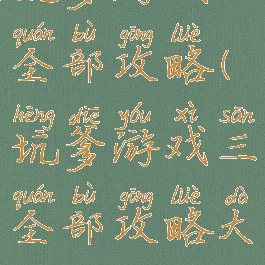 quán bù gōng lüè
全部攻略(
kēng diē yóu xì sān
坑爹游戏三
quán bù gōng lüè dà
全部攻略大